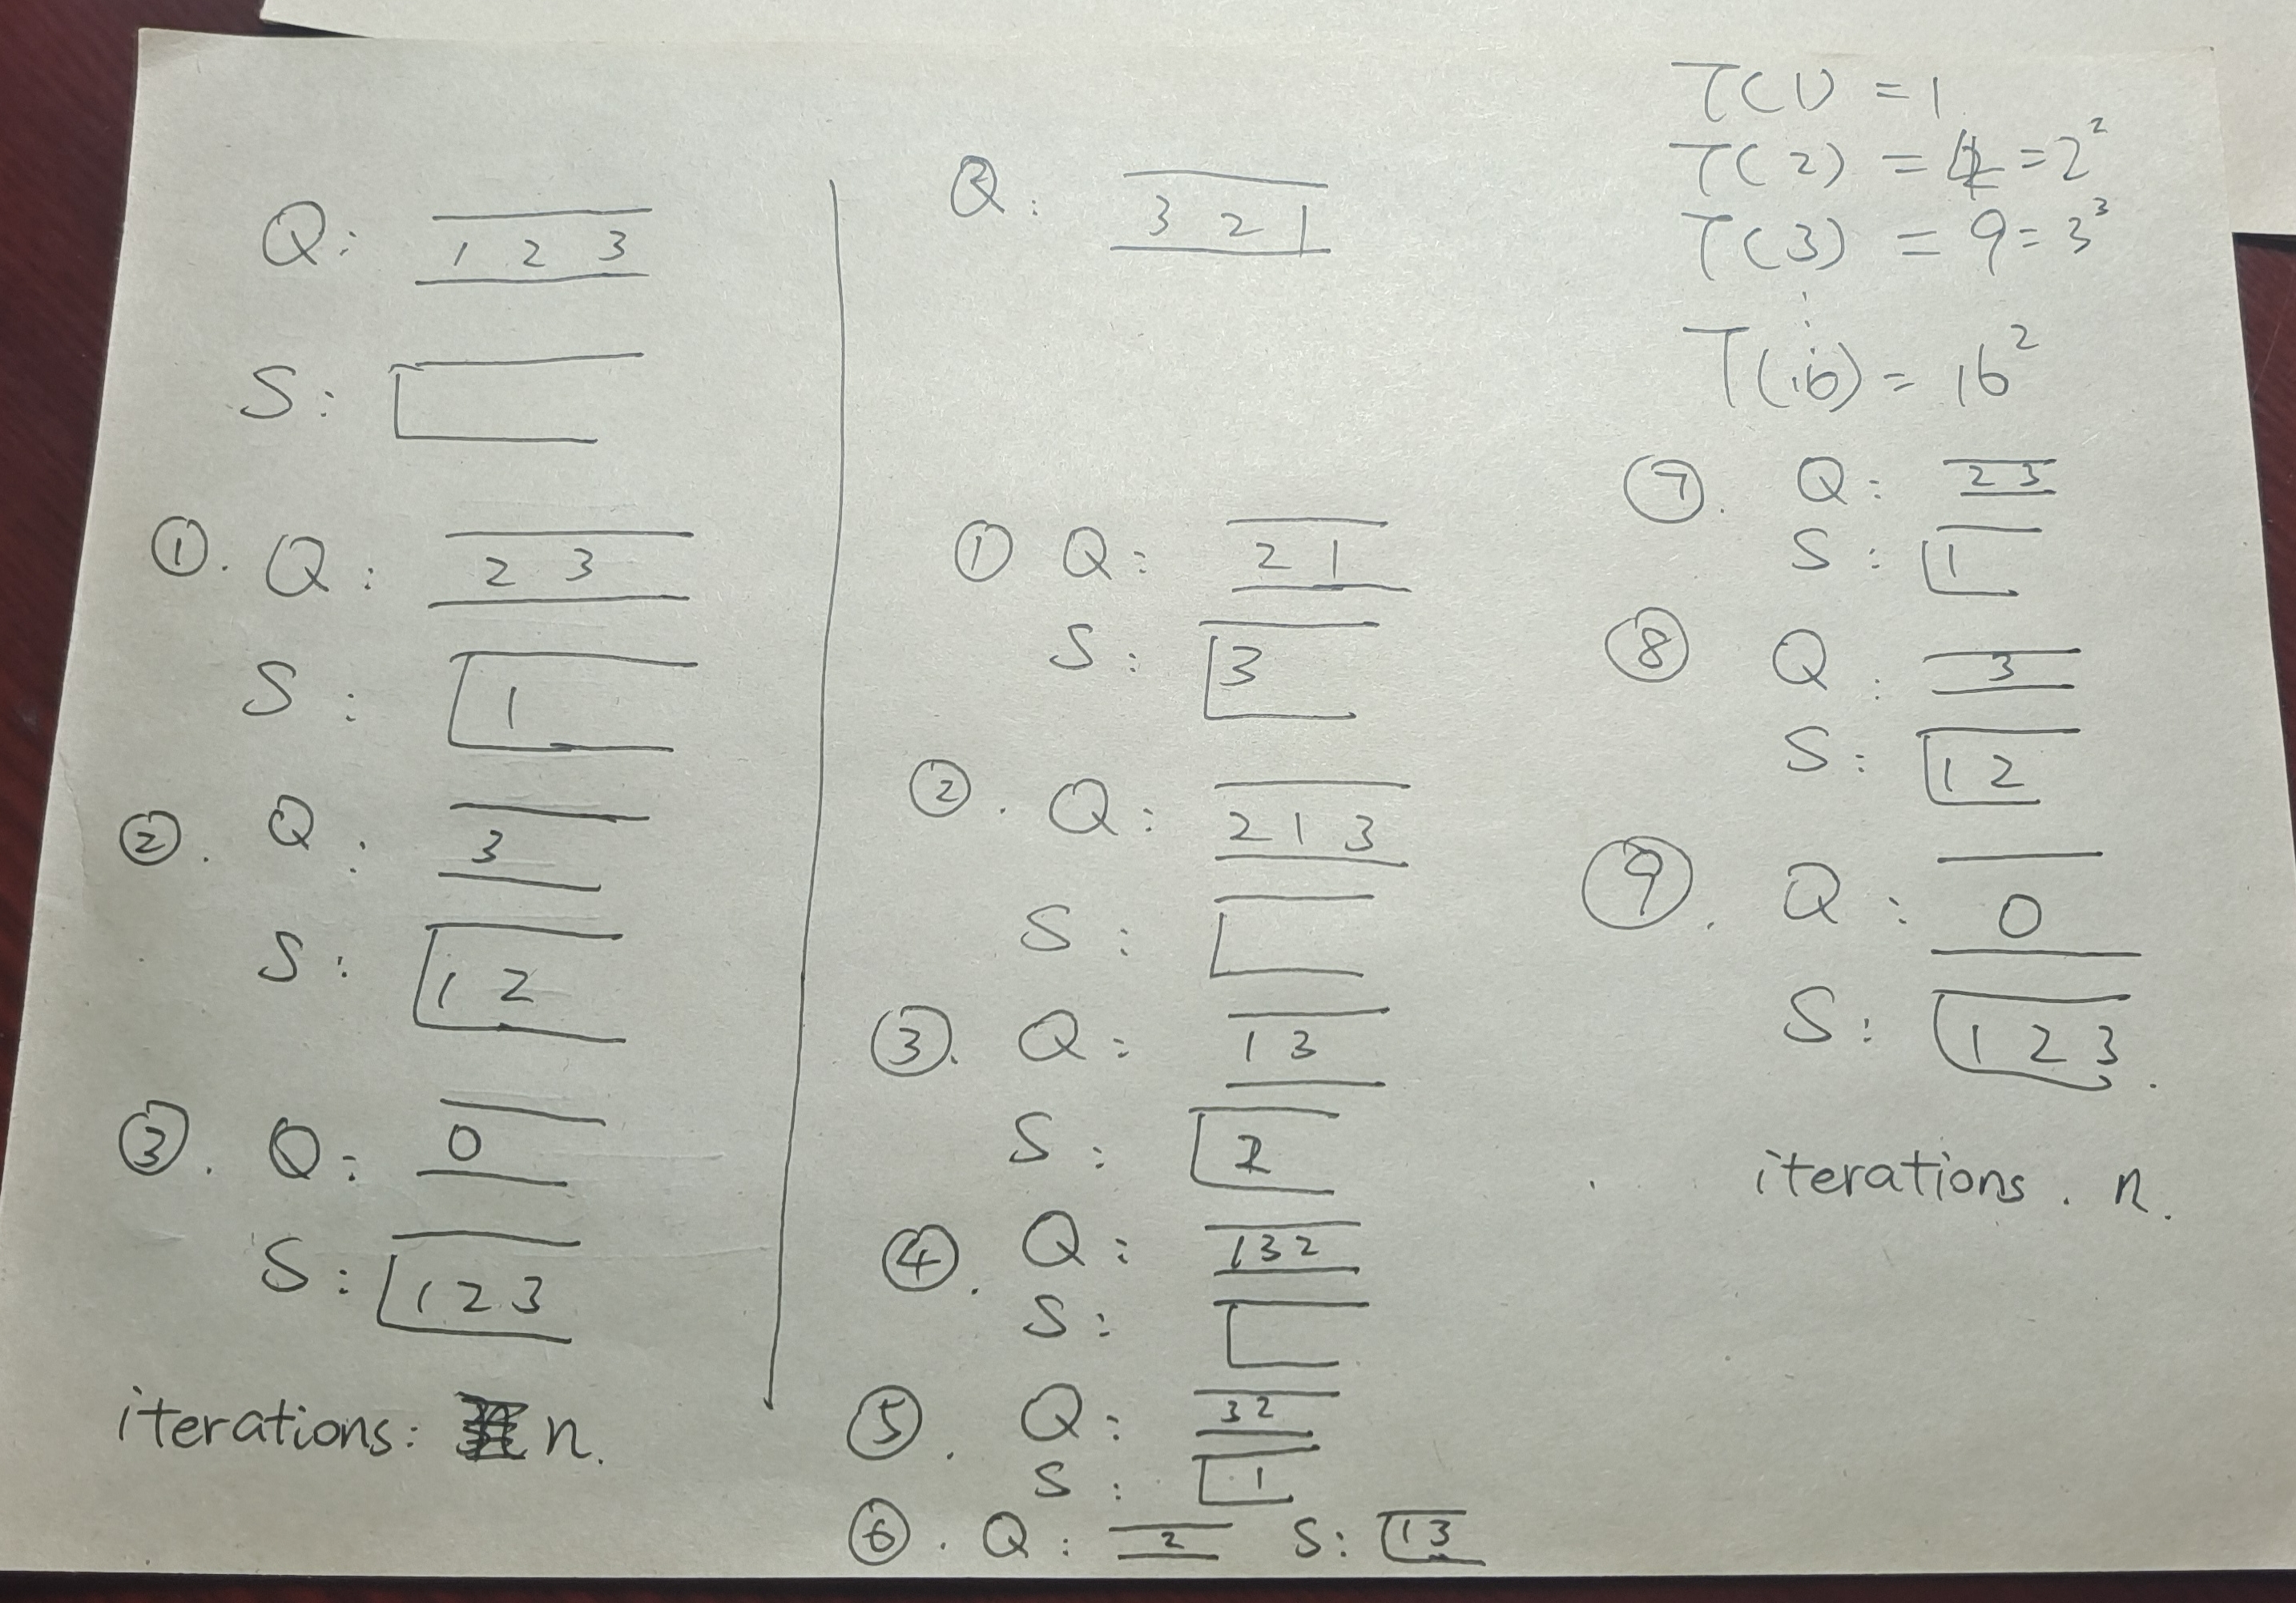 Q: 1 2 3
S:
①. Q: 2 3
S: 1
②. Q: 3
S: 1 2
③. Q: 0
S: 1 2 3
iterations: n.
Q: 3 2 1
① Q: 2 1
S: 3
②. Q: 2 1 3
S:
③. Q: 1 3
S: 2
④. Q: 1 3 2
S:
⑤. Q: 3 2
S: 1
⑥. Q: 2 S: 1 3
T(1) = 1
T(2) = 4 = 2²
T(3) = 9 = 3³
⋮
T(16) = 16²
⑦. Q: 2 3
S: 1
⑧ Q: 3
S: 1 2
⑨. Q: 0
S: 1 2 3.
iterations. n.